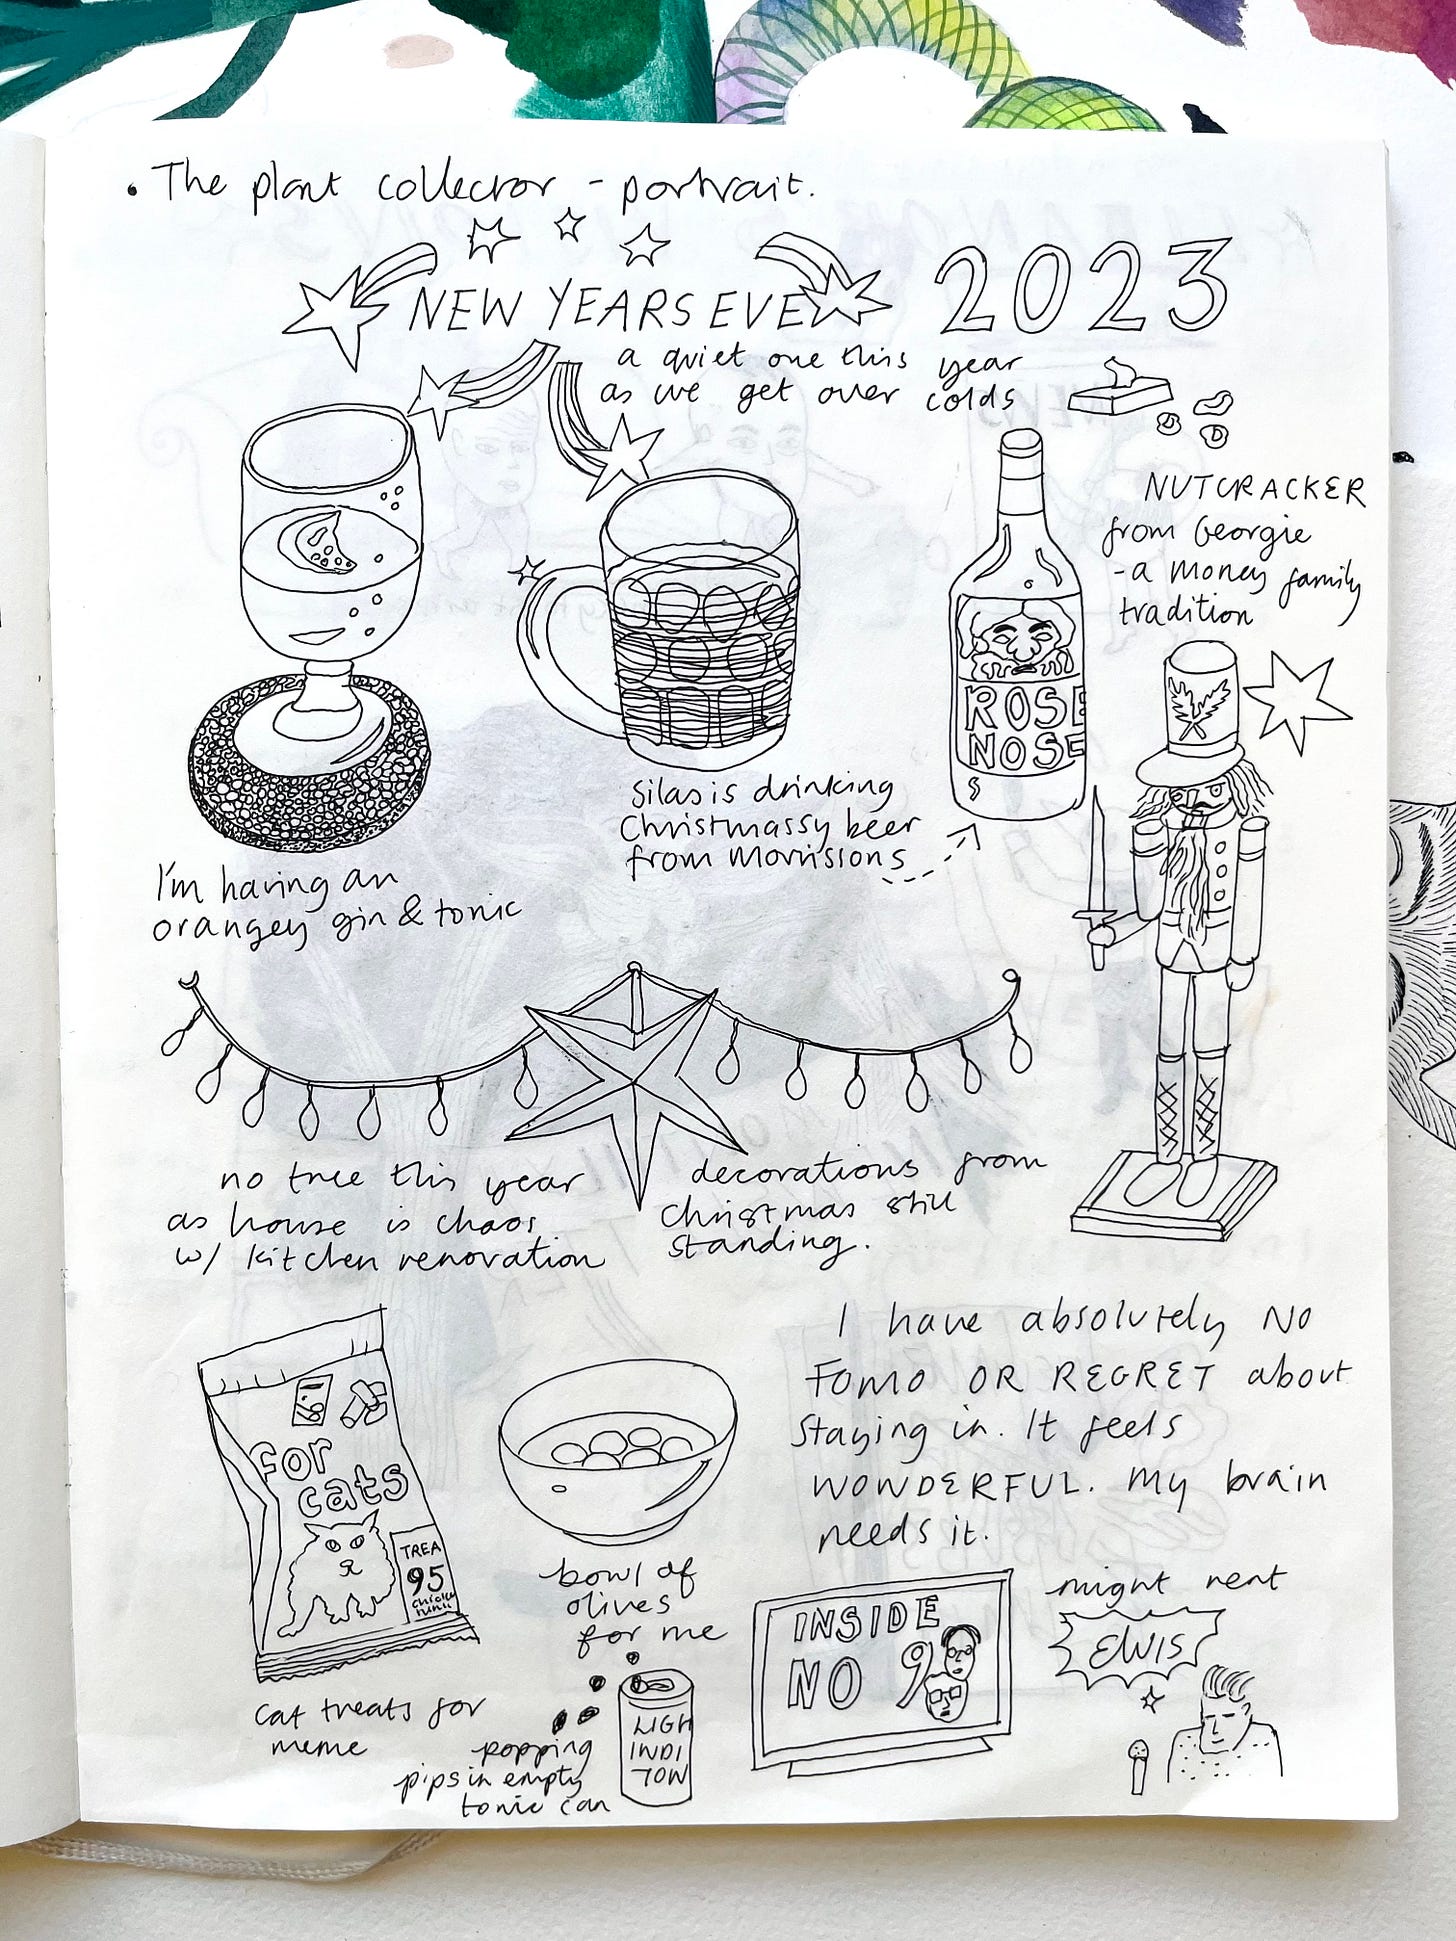 • The plant collector - portrait.
NEW YEARS EVE 2023
a quiet one this year
as we get over colds
NUTCRACKER
from Georgie
- a Money family
tradition
ROSE
NOSE
Silas is drinking
Christmassy beer
from Morrissons
I'm having an
orangey gin & tonic
no tree this year
as house is chaos
w/ kitchen renovation
decorations from
Christmas still
standing.
for
cats
TREA
95
I have absolutely NO
FOMO OR REGRET about
staying in. It feels
WONDERFUL. My brain
needs it.
bowl of
olives
for me
cat treats for
meme
popping
pips in empty
tonic can
LIGH
INDI
TON
INSIDE
NO 9
might rent
ELVIS